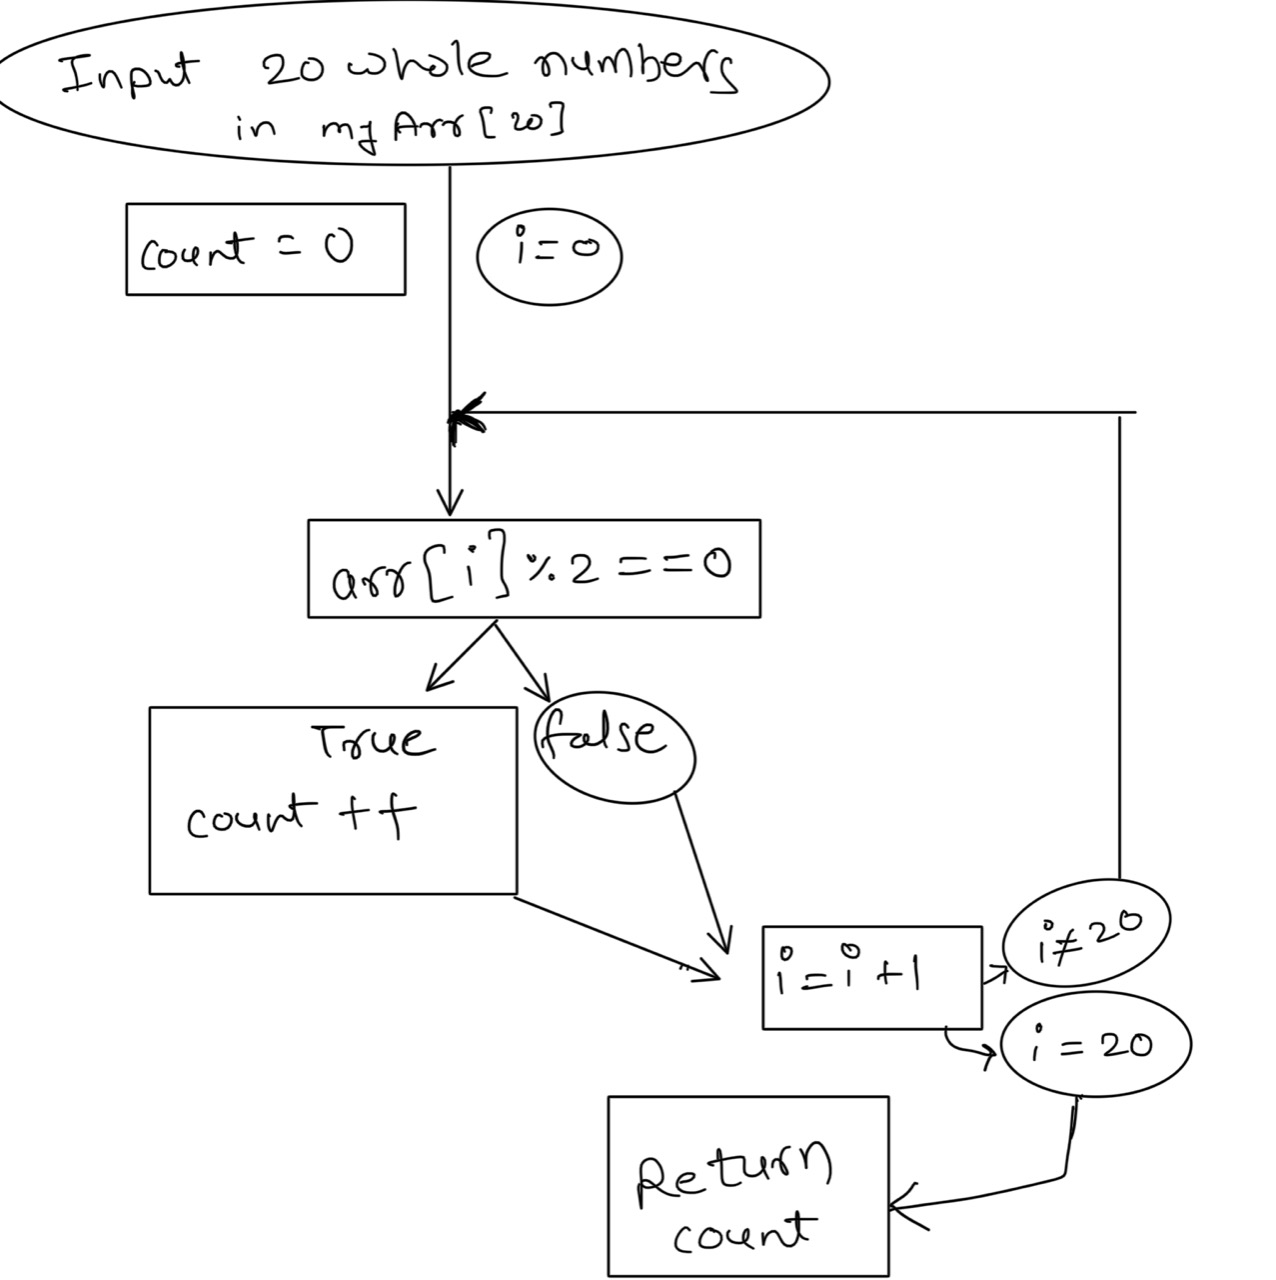 Input 20 whole numbers
in myArr[20]
count = 0
i=0
arr[i]%2==0
True
count ++
false
i=i+1
i≠20
i=20
Return
count